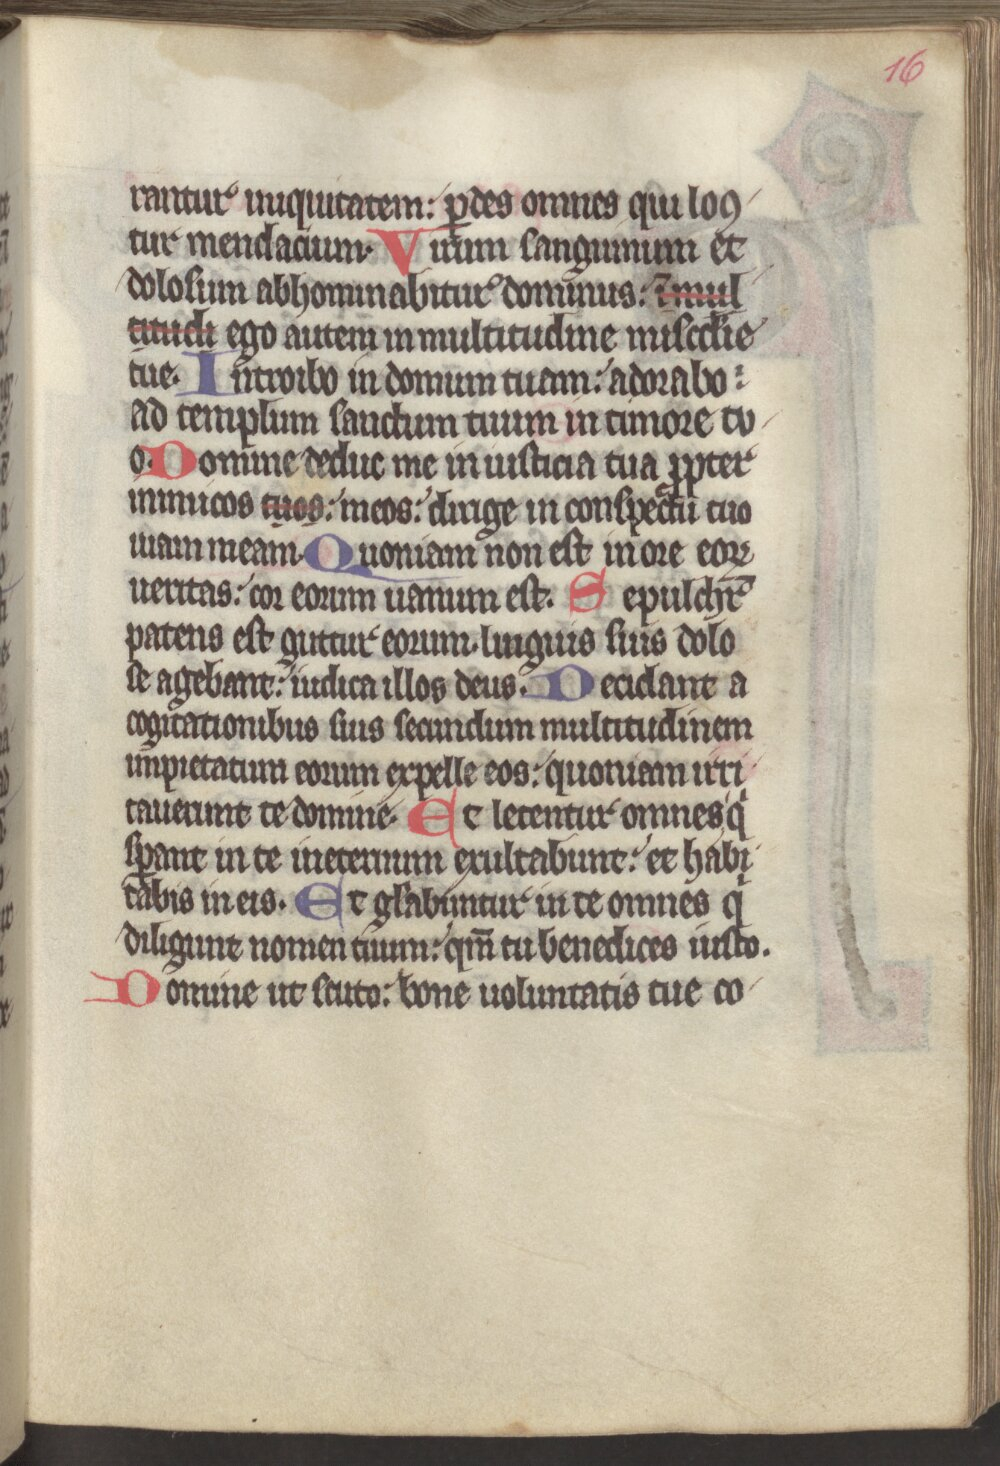 16
rantur iniquitatem: ꝑdes omnes qui loq
tur mendacium. Virum sanguinum et
dolosum abhominabitur dominus: ⁊ mul
titudi ego autem in multitudine misc̄die
tue. Introibo in domum tuam: adorabo
ad templum sanctum tuum in timore tu
o. Domine deduc me in iusticia tua ꝓpter
inimicos tuos: meos: dirige in conspectu tuo
uiam meam. Quoniam non est in ore eoꝝ
ueritas: cor eorum uanum est. Sepulchr̄
patens est guttur eorum. linguis suis dolo
se agebant: iudica illos deus. Decidant a
cogitationibus suis secundum multitudinem
impietatum eorum expelle eos: quoniam irri
tauerunt te domine. Et letentur omnes q̇
sꝑant in te ineternum exultabunt: et habi
tabis in eis. Et gl̄abuntur in te omnes q̇
diligunt nomen tuum: qm̄ tu benedices iusto.
Domine ut scuto: bone uoluntatis tue co